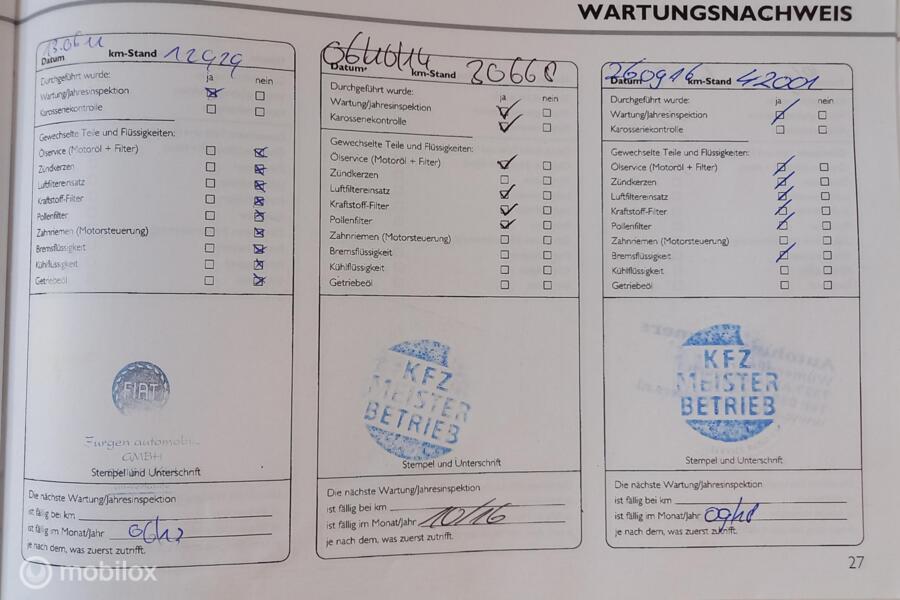 WARTUNGSNACHWEIS
13.06.11
Datum km-Stand 12929
Durchgeführt wurde: ja nein
Wartung/Jahresinspektion
Karosseriekontrolle
Gewechselte Teile und Flüssigkeiten:
Ölservice (Motoröl + Filter)
Zündkerzen
Luftfiltereinsatz
Kraftstoff-Filter
Pollenfilter
Zahnriemen (Motorsteuerung)
Bremsflüssigkeit
Kühlflüssigkeit
Getriebeöl
FIAT
GMBH
Stempel und Unterschrift
Die nächste Wartung/Jahresinspektion
ist fällig bei km
ist fällig im Monat/Jahr
je nach dem, was zuerst zutrifft.
06/10/14
Datum km-Stand 30668
Durchgeführt wurde: ja nein
Wartung/Jahresinspektion
Karosseriekontrolle
Gewechselte Teile und Flüssigkeiten:
Ölservice (Motoröl + Filter)
Zündkerzen
Luftfiltereinsatz
Kraftstoff-Filter
Pollenfilter
Zahnriemen (Motorsteuerung)
Bremsflüssigkeit
Kühlflüssigkeit
Getriebeöl
KFZ
MEISTER
BETRIEB
Stempel und Unterschrift
Die nächste Wartung/Jahresinspektion
ist fällig bei km
ist fällig im Monat/Jahr 10/16
je nach dem, was zuerst zutrifft.
260916
Datum km-Stand 42001
Durchgeführt wurde: ja nein
Wartung/Jahresinspektion
Karosseriekontrolle
Gewechselte Teile und Flüssigkeiten:
Ölservice (Motoröl + Filter)
Zündkerzen
Luftfiltereinsatz
Kraftstoff-Filter
Pollenfilter
Zahnriemen (Motorsteuerung)
Bremsflüssigkeit
Kühlflüssigkeit
Getriebeöl
KFZ
MEISTER
BETRIEB
Stempel und Unterschrift
Die nächste Wartung/Jahresinspektion
ist fällig bei km
ist fällig im Monat/Jahr 09/18
je nach dem, was zuerst zutrifft.
27
mobilox